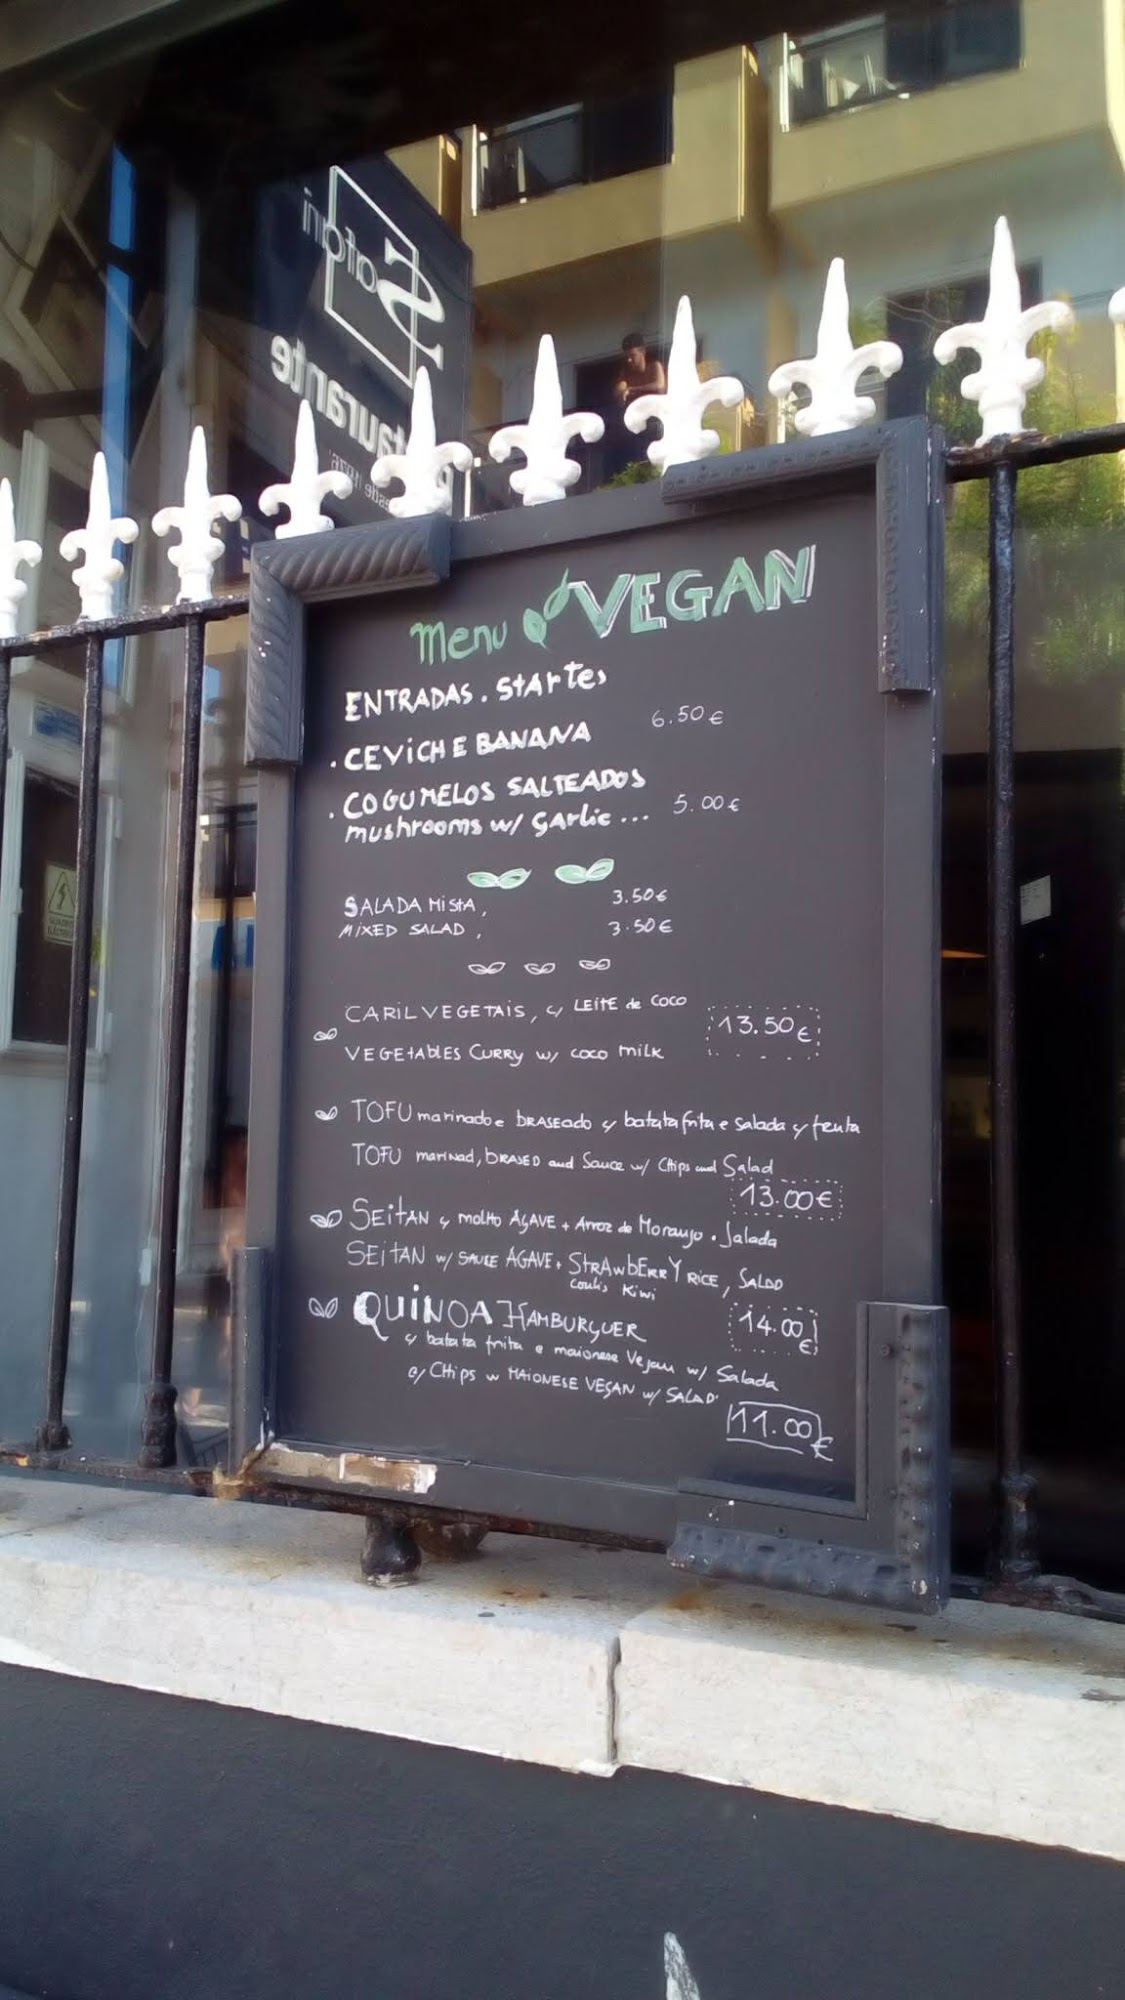 Safari
Restaurante
desde 1976
Menu VEGAN
ENTRADAS. StArtes
. CEViCHE BANANA 6.50€
. COGUMELOS SALTEADOS
mushrooms w/ Garlic... 5.00€
SALADA MistA, 3.50€
MiXED SALAD, 3.50€
CARIL VEGETAIS, c/ LEITE de COCO
13.50€
VEGEtAbLES CURRY w/ COCO milk
TOFU marinado e bRASEADO c/ batata frita e salada c/ fruta
TOFU marinad, bRASED and Sauce w/ Chips and Salad
13.00€
SEitAN c/ molho AGAVE + Arroz de Morango. Salada
SEitAN w/ SAUCE AGAVE + StRAwbERRY RICE, SALAD
Coulis Kiwi
QUiNOA HAMBURGUER 14.00€
c/ batata frita e maionese Vegan w/ Salada
c/ CHips w MAIONESE VEGAN w/ SALAD'
11.00€